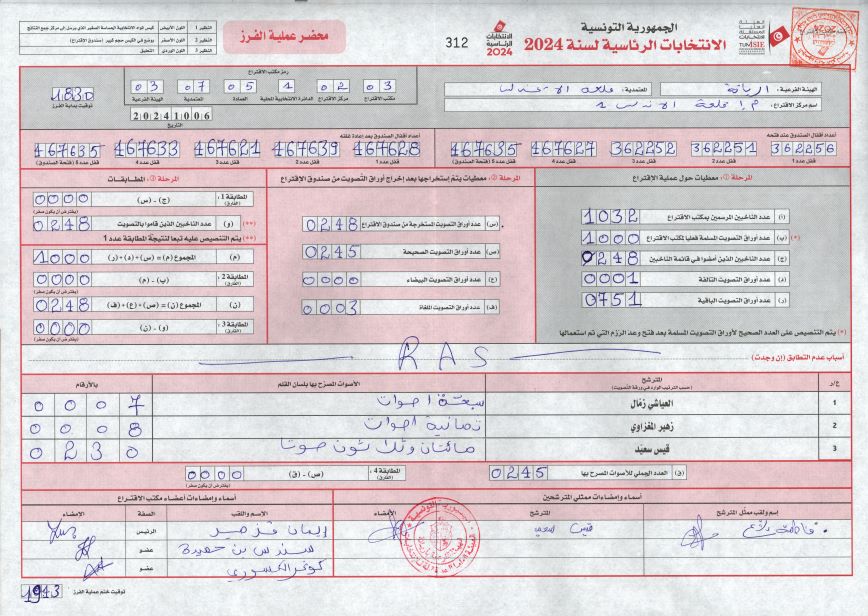 الجمهورية التونسية
الانتخابات الرئاسية لسنة 2024
الانتخابات الرئاسية 2024
312
محضر عملية الفرز
النظير 1 اللون الأبيض
النظير 2 اللون الأصفر
النظير 3 اللون الوردي
الهيئة الفرعية : اريانة
المعتمدية : قلعة الاندلس
اسم مركز الاقتراع :
رمز مكتب الاقتراع
03 02 1 05 07 03
مكتب الاقتراع مركز الاقتراع الدائرة الانتخابية المحلية العمادة المعتمدية الهيئة الفرعية
20241006
التاريخ
1830
توقيت بداية الفرز
أعداد أقفال الصندوق عند فتحه
362256 362251 362252 467627 467635
قفل عدد 1 قفل عدد 2 قفل عدد 3 قفل عدد 4 قفل عدد 5 (فتحة الصندوق)
أعداد أقفال الصندوق بعد إعادة غلقه
467628 467639 467621 467633 467635
قفل عدد 1 قفل عدد 2 قفل عدد 3 قفل عدد 4 قفل عدد 5 (فتحة الصندوق)
المرحلة ① : معطيات حول عملية الاقتراع
(أ) عدد الناخبين المرسمين بمكتب الاقتراع 1032
(*) (ب) عدد أوراق التصويت المسلمة فعليا لمكتب الاقتراع 1000
(ج) عدد الناخبين الذين أمضوا في قائمة الناخبين 0248
(د) عدد أوراق التصويت التالفة 0001
(ر) عدد أوراق التصويت الباقية 0751
(*) يتم التنصيص على العدد الصحيح لأوراق التصويت المسلمة بعد فتح وعد الرزم التي تم استعمالها
المرحلة ② : معطيات يتم إستخراجها بعد إخراج أوراق التصويت من صندوق الاقتراع
(س) عدد أوراق التصويت المستخرجة من صندوق الاقتراع 0248
(ص) عدد أوراق التصويت الصحيحة 0245
(ع) عدد أوراق التصويت البيضاء 0000
(ف) عدد أوراق التصويت الملغاة 0003
المرحلة ③ : المطابقات
المطابقة 1 : (الفارق) (ج) - (س) 0000
(يفترض أن يكون صفر)
(**) (و) عدد الناخبين الذين قاموا بالتصويت 0248
(**) يتم التنصيص عليه تبعا لنتيجة المطابقة عدد 1
(م) المجموع (م) = (س) + (د) + (ر) 1000
المطابقة 2 : (الفارق) (ب) - (م) 0000
(يفترض أن يكون صفر)
(ن) المجموع (ن) = (ص) + (ع) + (ف) 0248
المطابقة 3 : (الفارق) (و) - (ن) 0000
(يفترض أن يكون صفر)
أسباب عدم التطابق (إن وجدت) RAS
ع/د المترشح (حسب الترتيب الوارد في ورقة التصويت) الأصوات المصرّح بها بلسان القلم بالأرقام
1 العياشي زمّال سبعة اصوات 0007
2 زهير المغزاوي ثمانية اصوات 0008
3 قيس سعيّد مائتان وثلاثون صوتا 0230
(ق) العدد الجملي للأصوات المصرح بها 0245
المطابقة 4 : (الفارق) (ص) - (ق) 0000
(يفترض أن يكون صفر)
أسماء وإمضاءات ممثلي المترشحين
إسم ولقب ممثل المترشح المترشح الإمضاء
قيس سعيد
أسماء وإمضاءات أعضاء مكتب الاقتراع
الاسم واللقب الصفة الإمضاء
الرئيس
سندس بن حميدة عضو
عضو
1943 توقيت ختم عملية الفرز